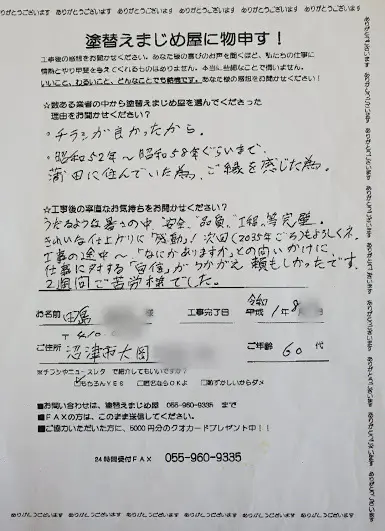 ありがとうございます ありがとうございます ありがとうございます ありがとうございます ありがとうございます
塗替えまじめ屋に物申す！
工事後の感想をお聞かせください。あなた様の喜びのお声を聞くほど、私たちの仕事に
情熱とやり甲斐を与えてくれるものはありません。本当に些細なことで構いません。
いいこと、わるいこと、どんなことでも結構です。あなた様の感想をお聞かせください！
☆数ある業者の中から塗替えまじめ屋を選んでくださった
理由をお聞かせください？
・チラシが良かったから。
・昭和52年〜昭和58年ぐらいまで、
蒲田に住んでいた為、ご縁を感じた為。
☆工事後の率直なお気持ちをお聞かせください？
うだるような暑さの中、安全、品質、工程、等完璧。
きれいな仕上がりに「感動」！次回(2035年ごろ)もよろしくネ。
工事の途中〜「なにかありますか」との問いかけに、
仕事に対する「自信」がうかがえ頼もしかったです。
2週間ご苦労様でした。
お名前 田島 様 工事完了日 令和 平成 1年 8
〒410
ご住所 沼津市大岡 ご年齢 60 代
※チラシやニュースレターで紹介してもいいですか？
□もちろんYES □匿名ならOKよ □恥ずかしいからダメ
■お問い合わせは、塗替えまじめ屋 055-960-9335 まで
■FAXの方は、このまま送信してください。
■ご協力いただいた方に、5000円分のクオカードプレゼント中！！
24時間受付FAX 055-960-9335
ありがとうございます ありがとうございます ありがとうございます ありがとうございます ありがとうございます